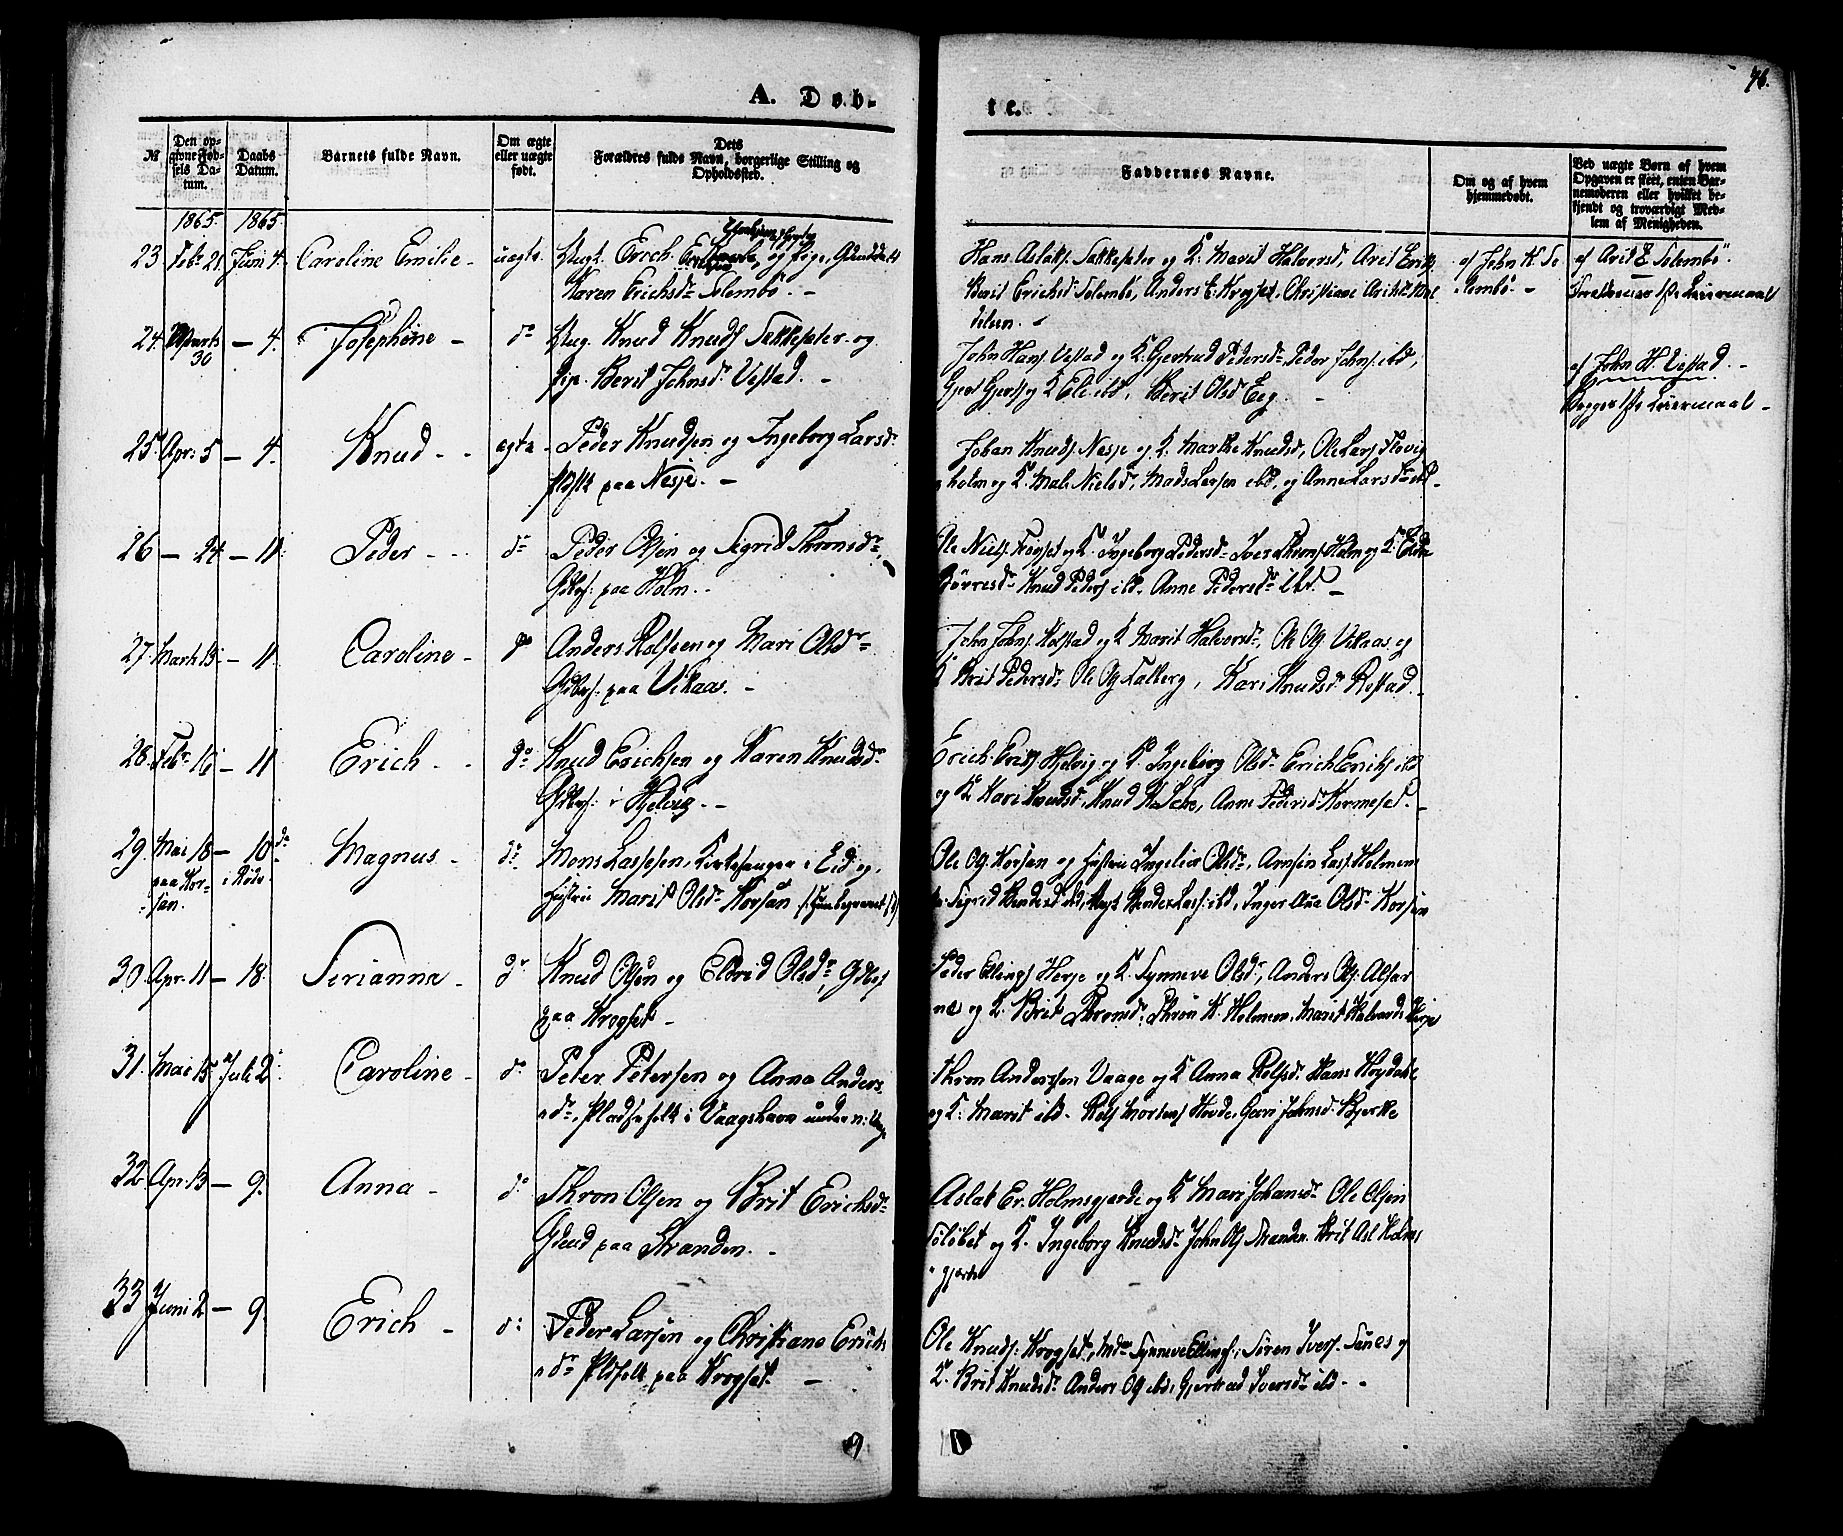 A. Døb-
te.
76.
№
Den op-
givne Fød-
sels Da-
tum.
Daabs
Datum.
Barnets fulde Navn.
Om ægte
eller uægte
født.
Dets
Forældres fulde Navn, borgerlige Stilling og
Opholdssted.
Faddernes Navne.
Om og af hvem
hjemmedøbt.
Ved uægte Børn af hvem
Opgaven er skeet, enten Bar-
nemoderen eller hvilket be-
kjendt og troværdigt Med-
lem af Menigheden.
1865. 1865.
23 Feb. 21. Juni 4. Caroline Emilie - uægte Ungk. Erich og Pige
Karen Erichsdr Solembø. -
Hans Aslaks. Sekkeseter og K. Marit Halvorsd, Arit Erik
Berit Erichsd Solembø, Anders E. Krogset, Christiane
af John K. So
lembø -
af Arit E Solembø.
24. Marts 30 - 4. Josephine - do Ung. Knud Knuds Sekkeseter og
Pip. Berit Johnsdr Vestad. -
John Hans Vestad og K. Gjertrud Pedersdr Peder Johns. ibd,
og K Eli ibd, Berit Olsd Eeg. -
af John H. Vestad. -
Begges 1ste Leiermaal -
25. Apr. 5 - 4. Knud - - ægte - Peder Knudsen og Ingeborg Larsdr
Pldsfk paa Nesje. -
Johan Knuds. Nesje og K. Marthe Knudsd, Ole Lars
holm og K. Mali Nielsd, Mads Larsen ibd, og Anne Larsdr ibd -
26 - 24 - 11. Peder - - - do Peder Olsen og Sigrid Thronsdr,
Gdbrf: paa Holm. -
Ole Niels Krogset og K. Ingeborg Pedersdr Iver Throns Holm og K.
Knud Peders ibd. Anne Pedersdr ibd. -
27. Marts 13 - 11 Caroline - do Anders Rolfsen og Mari Olsdr
Gdbrf: paa Vikaas. -
John Johns. Kolstad og K Marit Halvorsdr, Ole Og. Vikaas og
K Brit Pedersdr Ole Og Talberg, Kari Knudsdr Restad. -
28. Feb. 16 - 11 Erich - - do Knud Erichsen og Karen Knudsdr
Gdbrf: i Hjelvig. -
Erich Eriks Hjelvig og K Ingeborg Olsdr Erich Eriks ibd
og K Kari Knudsd, Knud K. Anne Pedersd Kormeset. -
29. Mai 18 - 10de Magnus - do Mons Lassesen, Kirkesanger i Eid og
paa Kor- i Rødv.
san.
Hustru Marit Olsdr Korsan
Ole Og. Korsan og Hustru Ingelia Olsdr, Arnsen Lass. Holmem
Sigrid Bendesd ibd, Ungk. Bender Lass: ibd, Inger Ana Olsdr Korsan
30. Apr. 11 - 18. Serianna - do Knud Olsen og Eldrid Olsdr, Gdbrf
paa Krogset -
Peder Ellings Herje og K. Synneve Olsdr, Anders Ols. Alsar
næ og K. Brit Thronsdr, Thron K. Holmem, Marit Halvards Herje
31. Mai 15 Juli 2. Caroline - do Peter Petersen og Anna Anders
dr, Pladsefolk i Vaagshavn under
Thron Anderssen Vaage og K Anna Rolfsdr Hans Høgdahl
og K: Marit ibd. Rolf Mortens Hovde, Guri Johnsdr Bjerke
32 Apr. 13 - 9. Anna - do Thron Olsen og Brit Erichsdr
paa Stranden. -
Aslak Er. Holmsgjærde og K Mari Johansdr Ole Olsen
Soløbet og K. Ingeborg Knudsdr John Og Stranden. Brit Asl Holms
gjærde
33 Juni 2 - 9. Erich - do Peder Larsen og Christiane Erichs
dr Pldsfolk paa Krogset -
Ole Knuds: Krogset, Synneve Ellings., Søren Ivers. Sønes og
K. Brit Knudsdr Anders Og ibd, Gjertrud Iversdr ibd - -